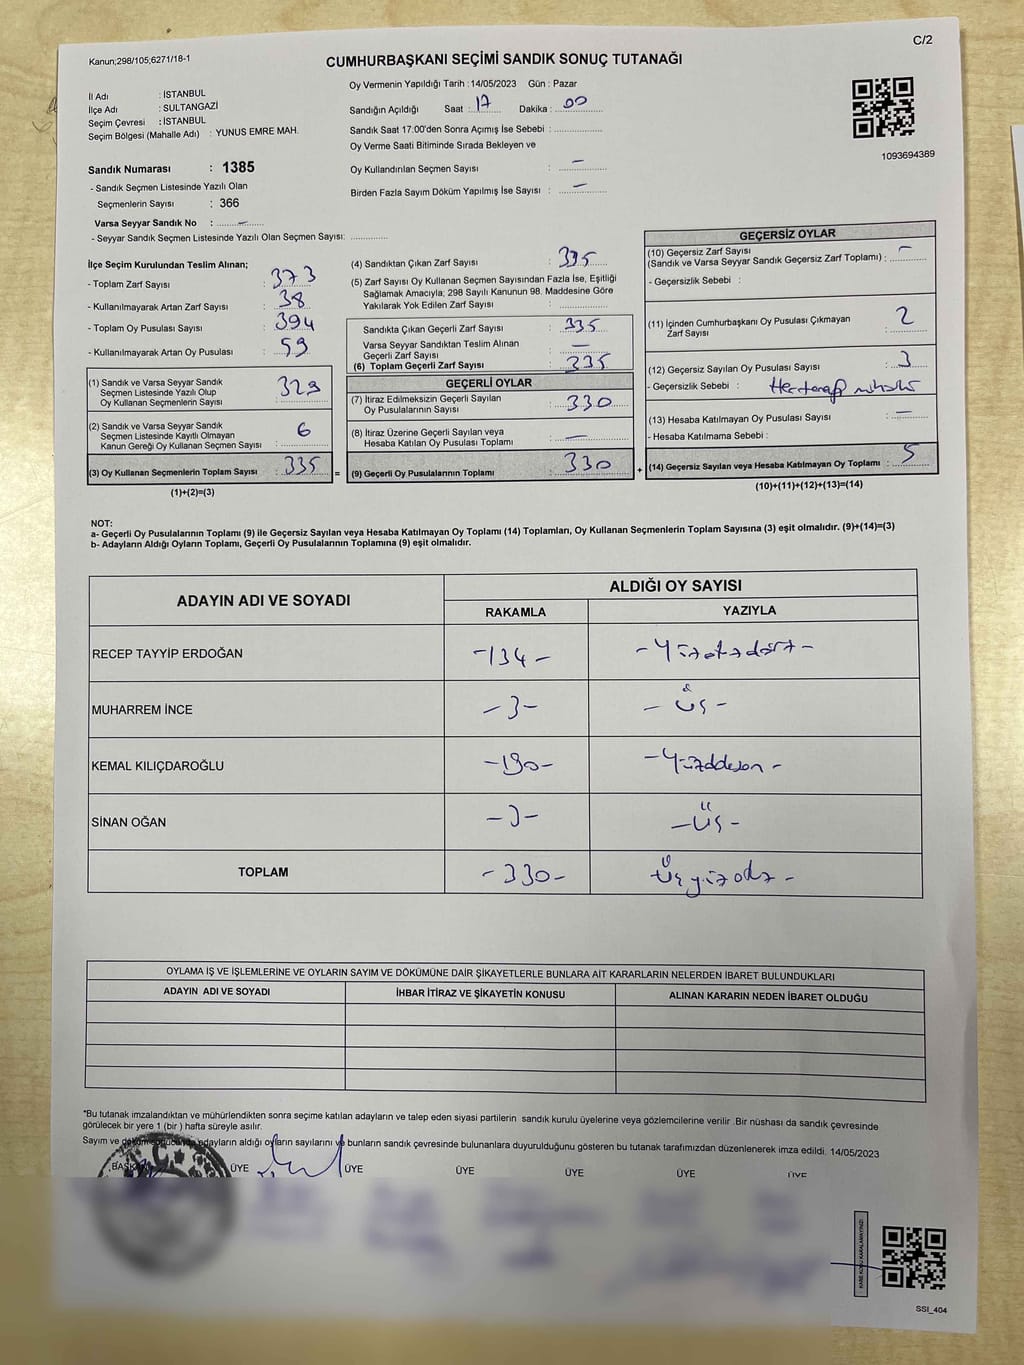 C/2
Kanun;298/105;6271/18-1
CUMHURBAŞKANI SEÇİMİ SANDIK SONUÇ TUTANAĞI
İl Adı : İSTANBUL
İlçe Adı : SULTANGAZİ
Seçim Çevresi : İSTANBUL
Seçim Bölgesi (Mahalle Adı) : YUNUS EMRE MAH.
Sandık Numarası : 1385
- Sandık Seçmen Listesinde Yazılı Olan
Seçmenlerin Sayısı : 366
Varsa Seyyar Sandık No : -
- Seyyar Sandık Seçmen Listesinde Yazılı Olan Seçmen Sayısı: ............
Oy Vermenin Yapıldığı Tarih : 14/05/2023 Gün : Pazar
Sandığın Açıldığı Saat : 17 Dakika : 00
Sandık Saat 17:00'den Sonra Açımış İse Sebebi : ............
Oy Verme Saati Bitiminde Sırada Bekleyen ve
Oy Kullandırılan Seçmen Sayısı : -
Birden Fazla Sayım Döküm Yapılmış İse Sayısı : -
1093694389
İlçe Seçim Kurulundan Teslim Alınan;
- Toplam Zarf Sayısı : 373
- Kullanılmayarak Artan Zarf Sayısı : 38
- Toplam Oy Pusulası Sayısı : 394
- Kullanılmayarak Artan Oy Pusulası : 59
(1) Sandık ve Varsa Seyyar Sandık
Seçmen Listesinde Yazılı Olup
Oy Kullanan Seçmenlerin Sayısı : 329
(2) Sandık ve Varsa Seyyar Sandık
Seçmen Listesinde Kayıtlı Olmayan
Kanun Gereği Oy Kullanan Seçmen Sayısı : 6
(3) Oy Kullanan Seçmenlerin Toplam Sayısı : 335
(1)+(2)=(3)
=
(4) Sandıktan Çıkan Zarf Sayısı : 335
(5) Zarf Sayısı Oy Kullanan Seçmen Sayısından Fazla İse, Eşitliği
Sağlamak Amacıyla; 298 Sayılı Kanunun 98. Maddesine Göre
Yakılarak Yok Edilen Zarf Sayısı : ............
Sandıkta Çıkan Geçerli Zarf Sayısı : 335
Varsa Seyyar Sandıktan Teslim Alınan
Geçerli Zarf Sayısı : -
(6) Toplam Geçerli Zarf Sayısı : 335
GEÇERLİ OYLAR
(7) İtiraz Edilmeksizin Geçerli Sayılan
Oy Pusulalarının Sayısı : 330
(8) İtiraz Üzerine Geçerli Sayılan veya
Hesaba Katılan Oy Pusulası Toplamı : -
(9) Geçerli Oy Pusulalarının Toplamı : 330
+
GEÇERSİZ OYLAR
(10) Geçersiz Zarf Sayısı
(Sandık ve Varsa Seyyar Sandık Geçersiz Zarf Toplamı) : -
- Geçersizlik Sebebi :
(11) İçinden Cumhurbaşkanı Oy Pusulası Çıkmayan
Zarf Sayısı : 2
(12) Geçersiz Sayılan Oy Pusulası Sayısı : 3
- Geçersizlik Sebebi : Her taraf mühürlü
(13) Hesaba Katılmayan Oy Pusulası Sayısı : -
- Hesaba Katılmama Sebebi :
(14) Geçersiz Sayılan veya Hesaba Katılmayan Oy Toplamı : 5
(10)+(11)+(12)+(13)=(14)
NOT:
a- Geçerli Oy Pusulalarının Toplamı (9) ile Geçersiz Sayılan veya Hesaba Katılmayan Oy Toplamı (14) Toplamları, Oy Kullanan Seçmenlerin Toplam Sayısına (3) eşit olmalıdır. (9)+(14)=(3)
b- Adayların Aldığı Oyların Toplamı, Geçerli Oy Pusulalarının Toplamına (9) eşit olmalıdır.
ADAYIN ADI VE SOYADI
ALDIĞI OY SAYISI
RAKAMLA YAZIYLA
RECEP TAYYİP ERDOĞAN -134- -Yüzotuzdört-
MUHARREM İNCE -3- -Üç-
KEMAL KILIÇDAROĞLU -190- -Yüzdoksan-
SİNAN OĞAN -3- -Üç-
TOPLAM -330- Üçyüzotuz-
OYLAMA İŞ VE İŞLEMLERİNE VE OYLARIN SAYIM VE DÖKÜMÜNE DAİR ŞİKAYETLERLE BUNLARA AİT KARARLARIN NELERDEN İBARET BULUNDUKLARI
ADAYIN ADI VE SOYADI İHBAR İTİRAZ VE ŞİKAYETİN KONUSU ALINAN KARARIN NEDEN İBARET OLDUĞU
*Bu tutanak imzalandıktan ve mühürlendikten sonra seçime katılan adayların ve talep eden siyasi partilerin sandık kurulu üyelerine veya gözlemcilerine verilir .Bir nüshası da sandık çevresinde
görülecek bir yere 1 (bir ) hafta süreyle asılır.
Sayım ve döküm sonucunda adayların aldığı oyların sayılarını ve bunların sandık çevresinde bulunanlara duyurulduğunu gösteren bu tutanak tarafımızdan düzenlenerek imza edildi. 14/05/2023
BAŞKAN ÜYE ÜYE ÜYE ÜYE ÜYE ÜYE
KARE KODU KARALAMAYINIZ!
SSI_404